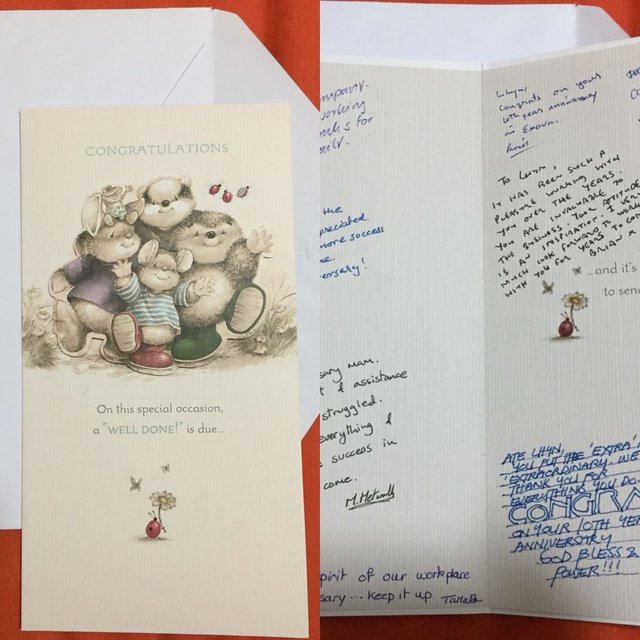 CONGRATULATIONS
On this special occasion,
a "WELL DONE!" is due...
mpany.
working
ks for
the
preciated.
more success
me.
versary!
sary mam.
t & assistance
struggled.
everything &
success in
come.
M. Metwally
pirit of our workplace
sary --- keep it up Tamara
Lhyn,
Congrats on your
10th year anniversary
in Enova.
TO LHYN,
IT HAS BEEN SUCH A
PLEASURE WORKING WITH
YOU OVER THE YEARS.
YOU ARE INVALUABLE TO
THE BUSINESS. YOUR ATTITUDE
IS AN INSPIRATION. I VERY
MUCH LOOK FORWARD TO WORKING
WITH YOU FOR YEARS TO COME
BRIAN X
...and it's
to send
ATE LHYN,
YOU PUT THE 'EXTRA' IN
'EXTRAORDINARY. WE
THANK YOU FOR
EVERYTHING YOU DO.
CONGRA
ON YOUR 10TH YEA
ANNIVERSARY
GOD BLESS &
POWER!!!